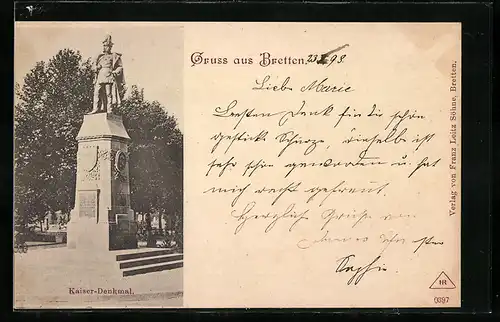 Gruss aus Bretten, 23 98
Liebe Marie
Besten Dank für die schön
gestickte Schürze, dieselbe ist
sehr schön geworden u. hat
mich recht gefreut.
Herzliche Grüße von
Sophie
Kaiser-Denkmal.
Verlag von Franz Leitz Söhne, Bretten.
0897